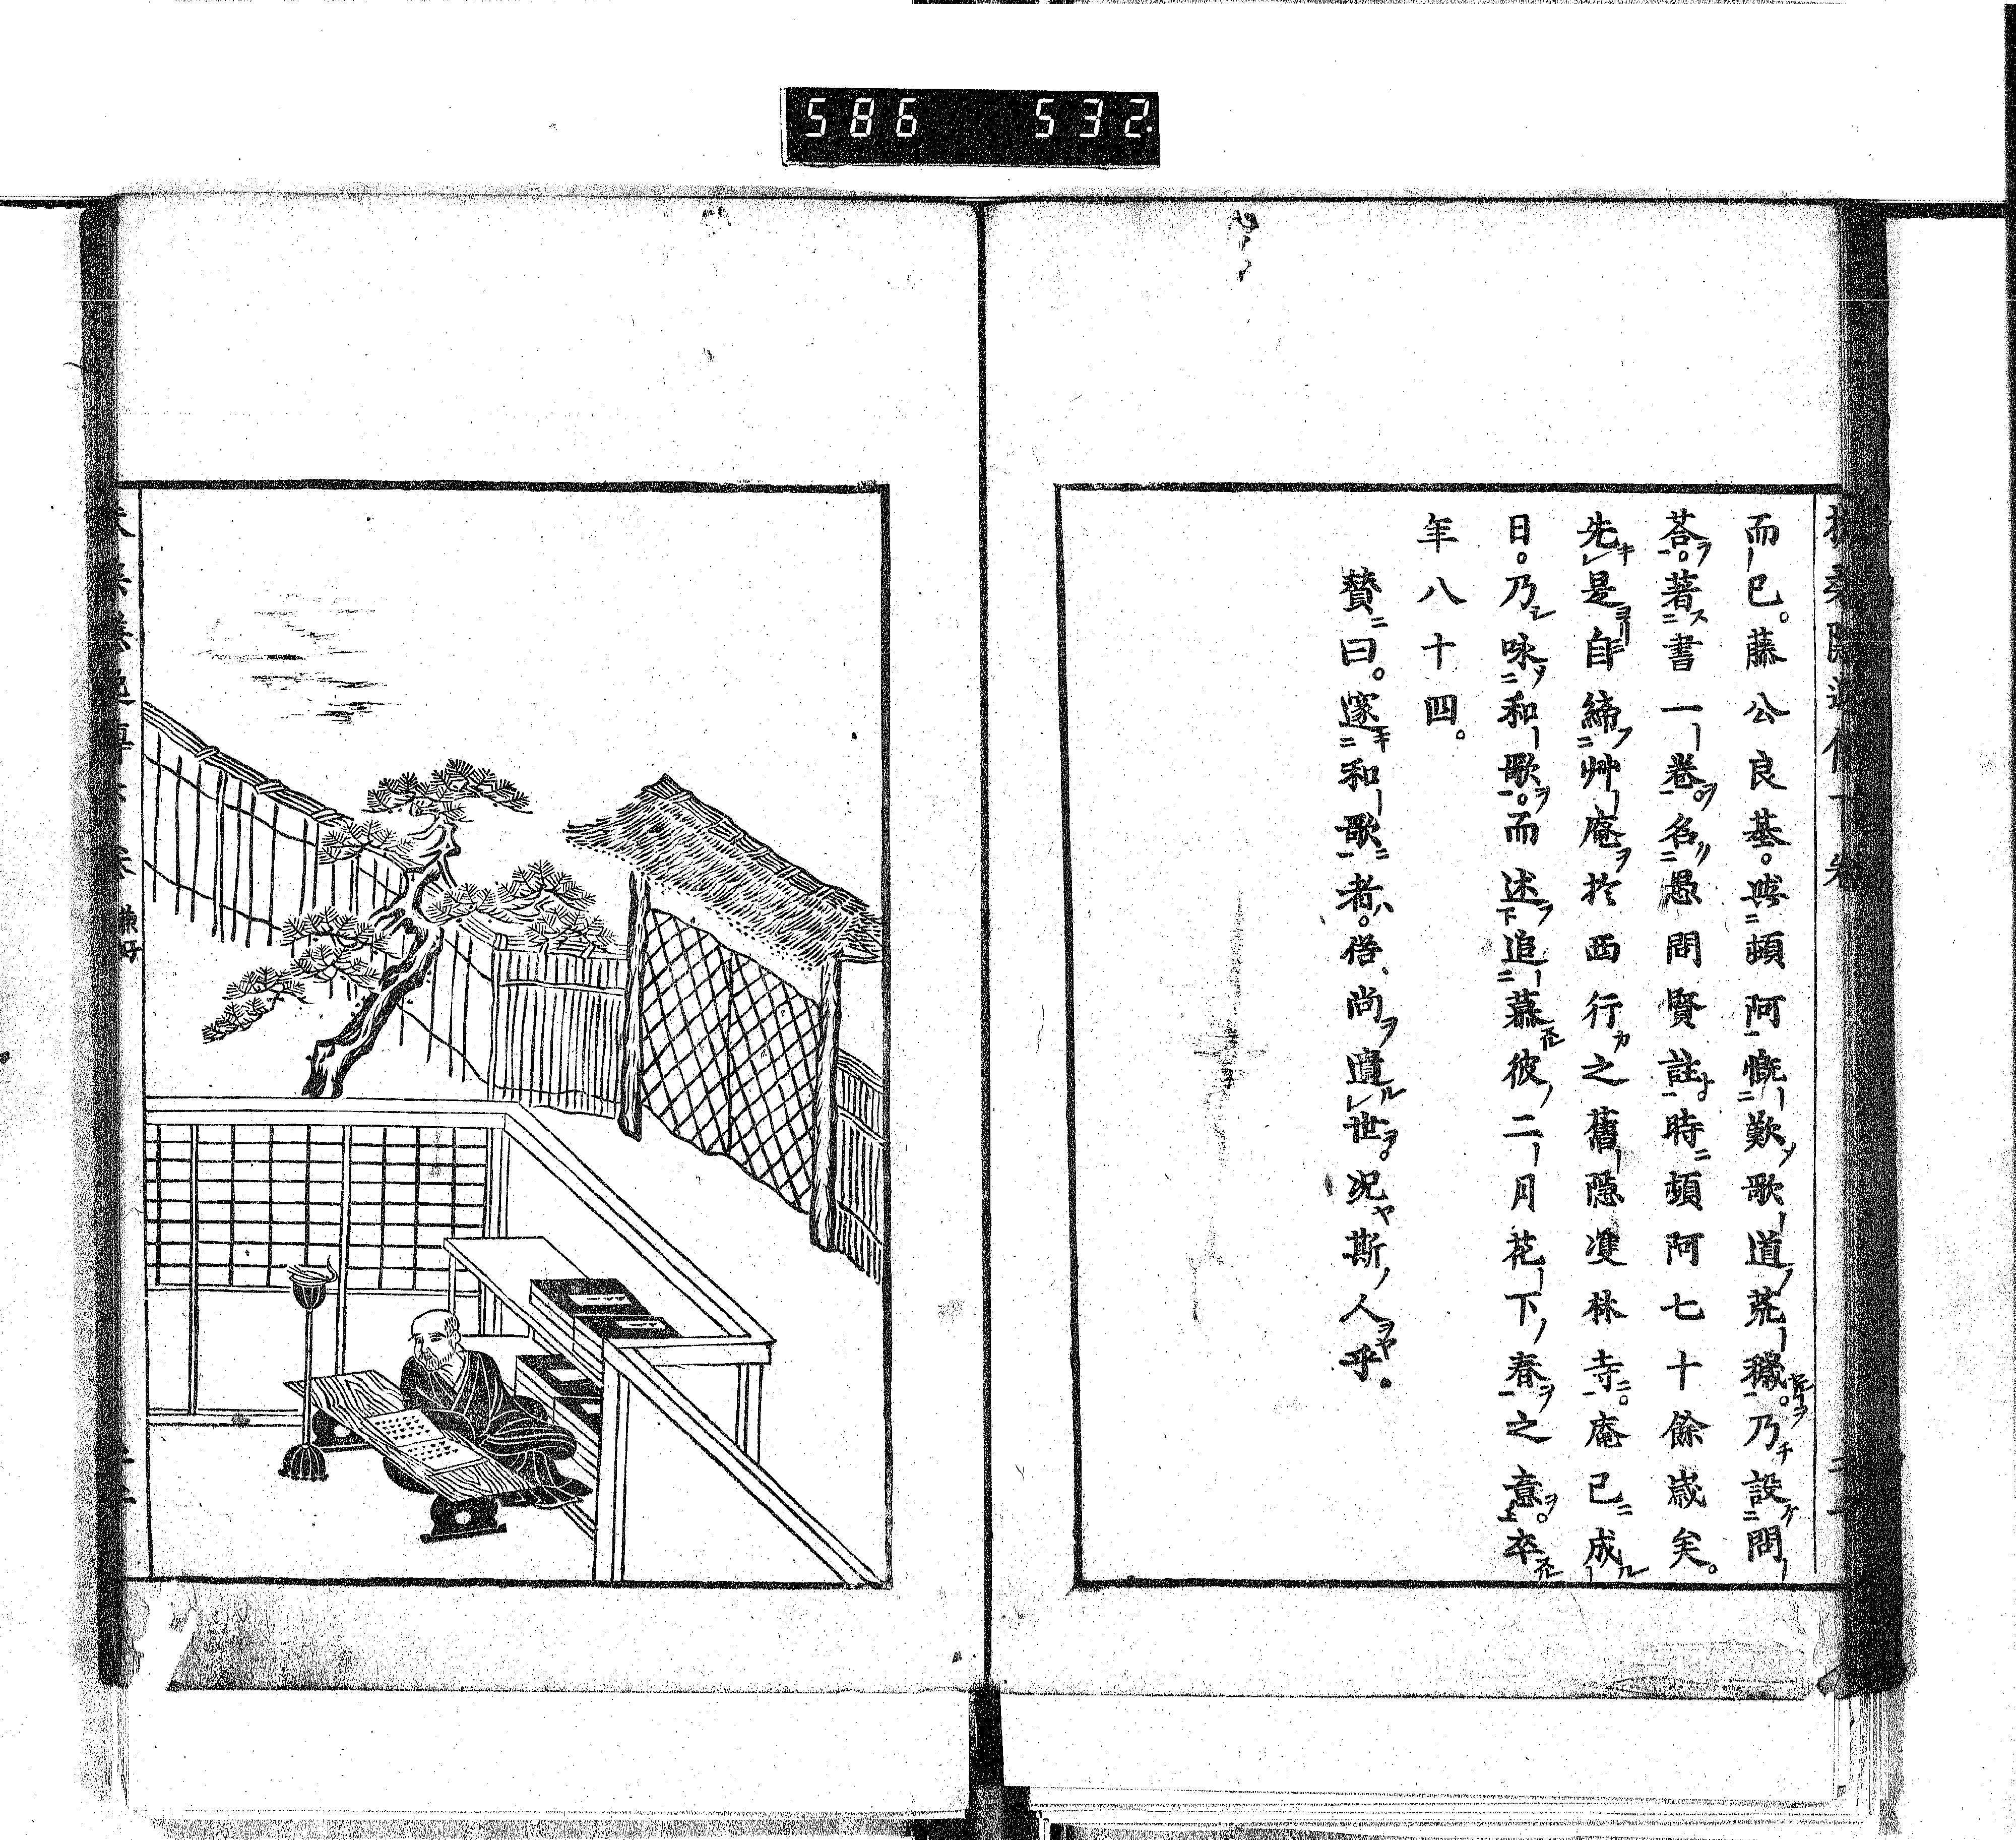 586 532
扶桑隱逸傳下卷
而已。藤公良基。與頓阿慨歎歌道荒穢。乃設問
荅。著書一卷。名愚問賢註時頓阿七十餘歲矣。
先是自締艸庵於西行之舊隱雙林寺。庵已成
日。乃咏和歌。而述追慕彼二月花下春之意。卒
年八十四。
賛曰。邃和歌者。尚遺世。况斯人乎。
兼好